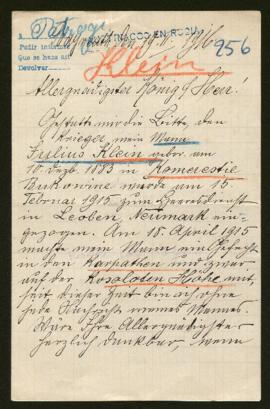 Patrogi
Pedir informe
Que se haga así
Devolver
956
Klein
Allergnädigster König & Herr.
Gestatte mir die Bitte, den
Krieger, mein Mann
Julius Klein gebor. am
10. Dezb. 1883 in Kamerestie
Bukowina wurde am 15
Februar 1915 zum Heeresdienst
in Leoben, Neumark ein-
gezogen. Am 18. April 1915
machte mein Mann
in den Karpathen und zwar
auf der Kosaloden Höhe mit,
seit dieser Zeit bin ich ohne
jede Nachricht meines Mannes.
Wäre Ihre Allergnädigster
herzlich dankbar, wenn